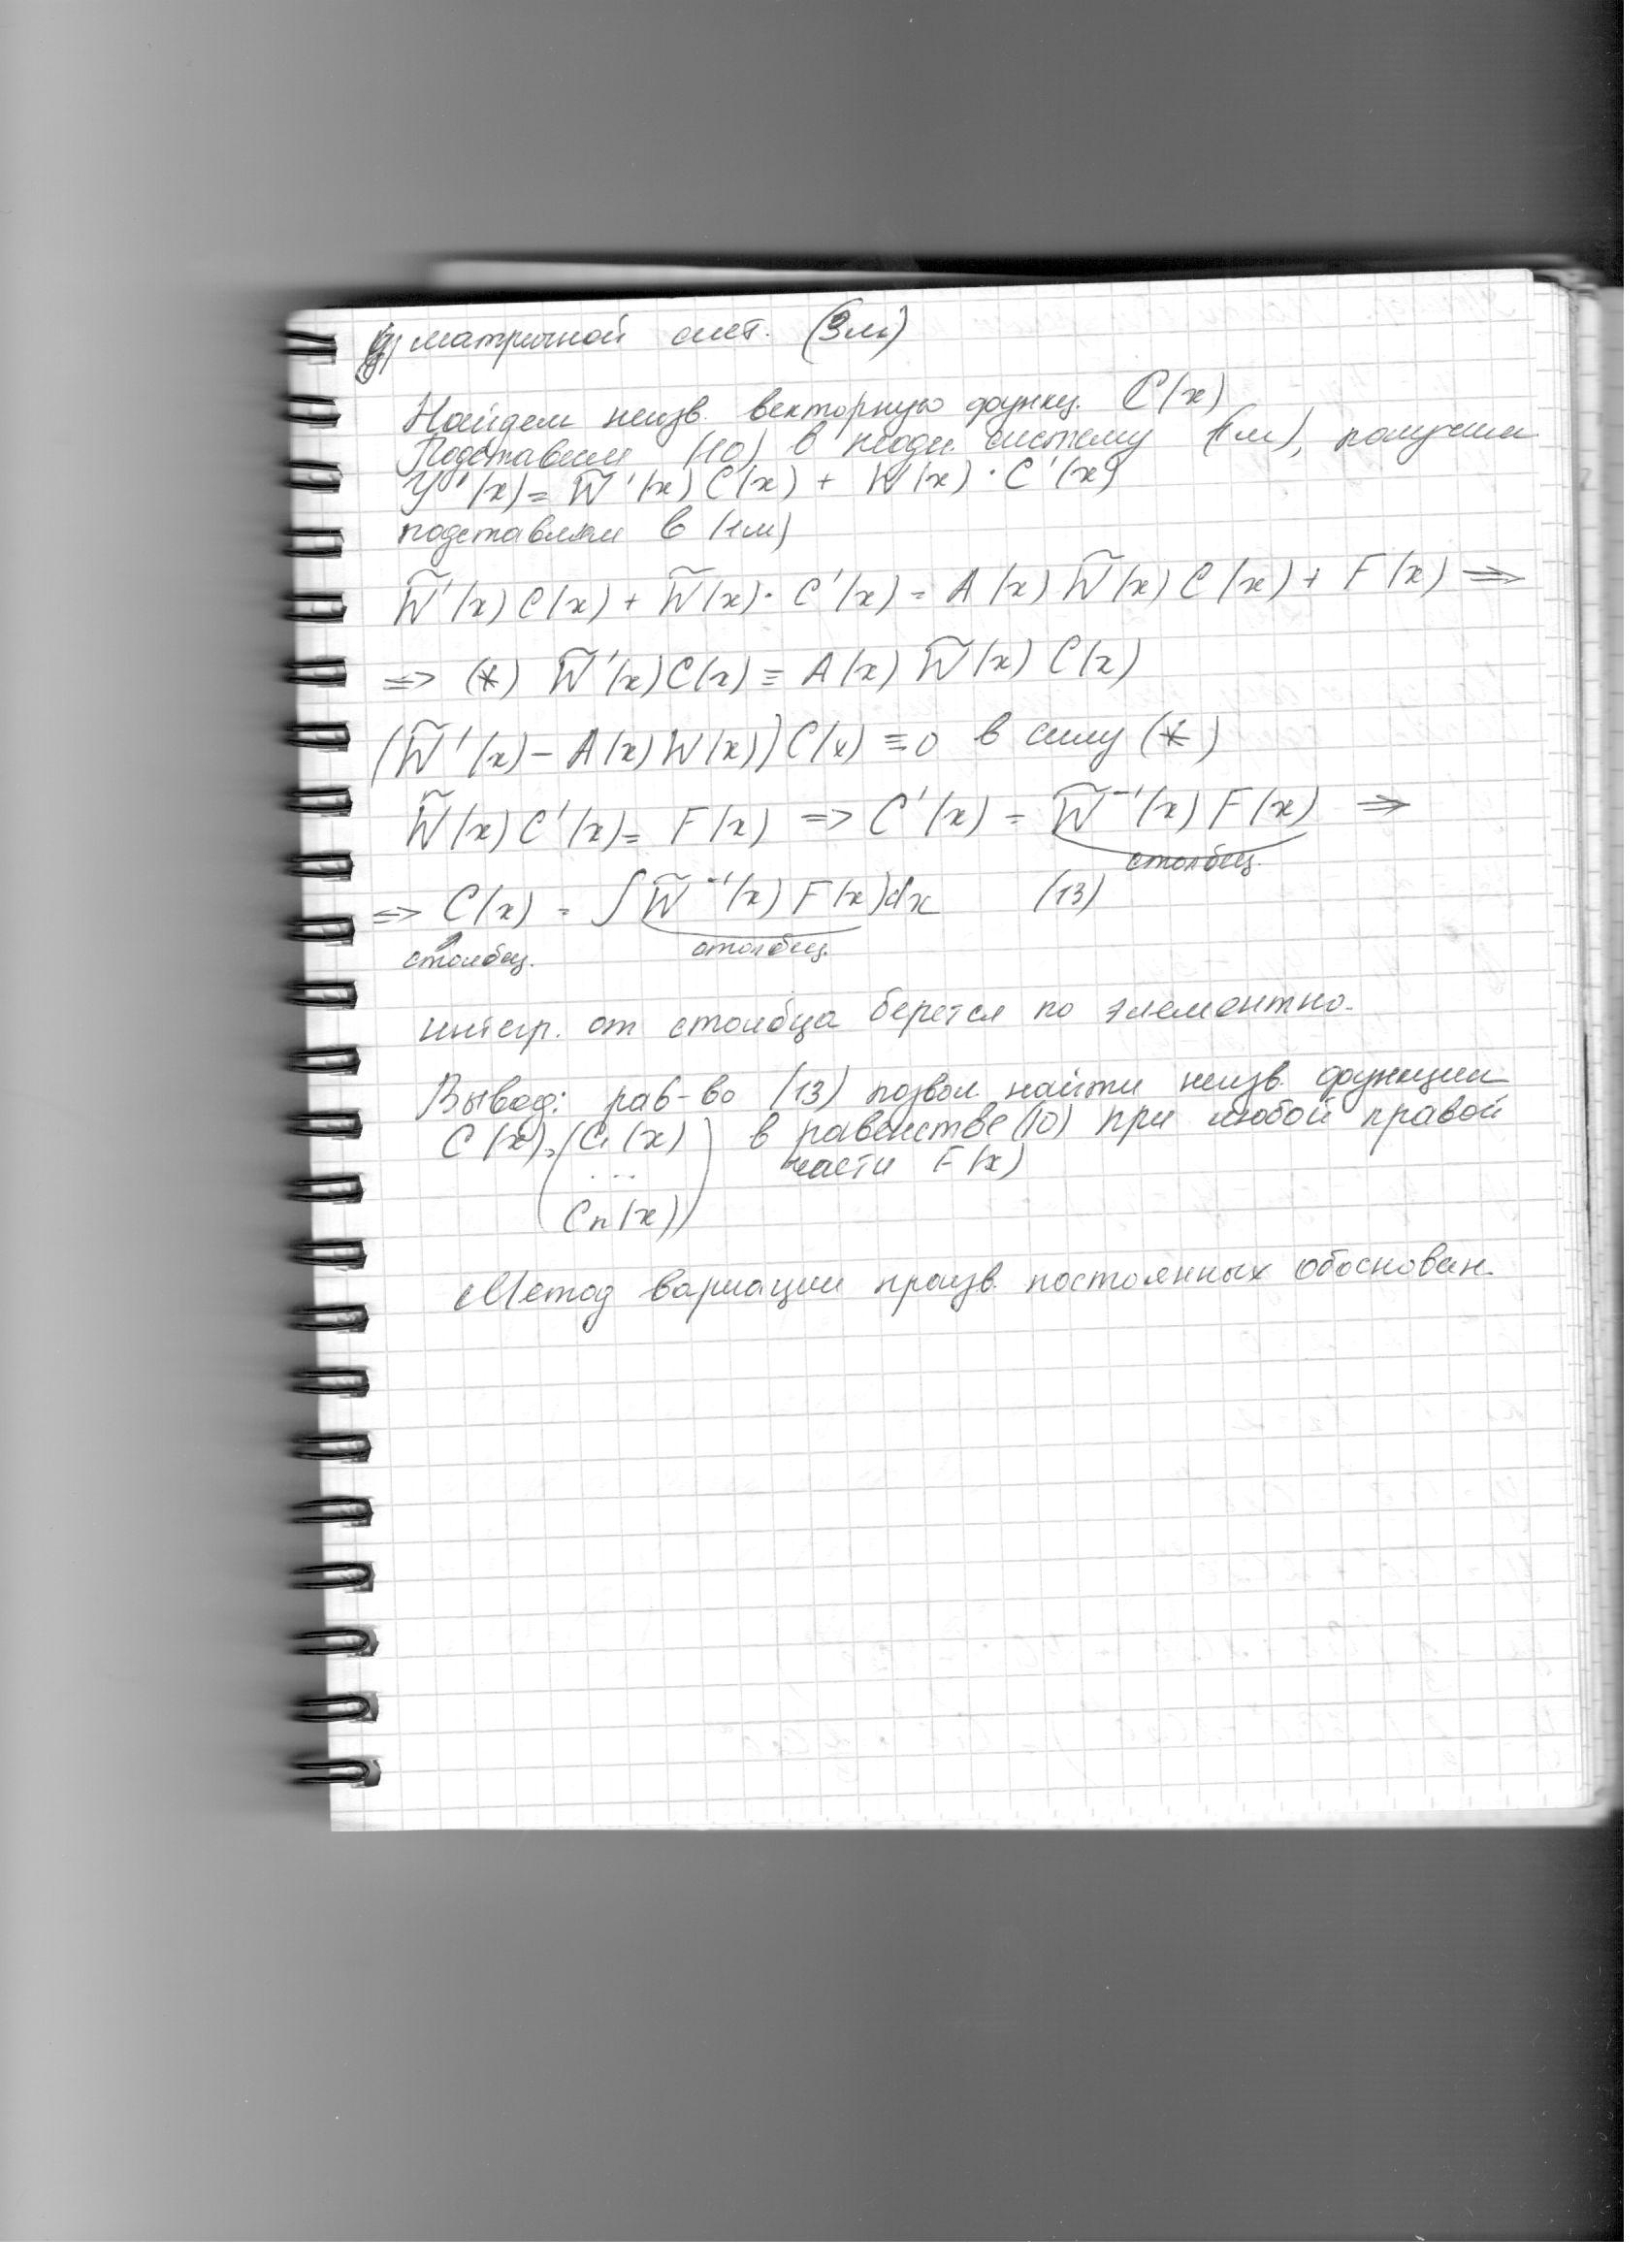 матричной сист. (3м)
Найдем неизв. векторную функц. C(x)
Подставим (10) в неодн. систему (1м), получим
Y'(x) = W̃'(x) C(x) + W(x) · C'(x)
подставляем в (1м)
W̃'(x) C(x) + W̃(x) · C'(x) = A(x) W̃(x) C(x) + F(x) =>
=> (*) W̃'(x) C(x) ≡ A(x) W̃(x) C(x)
(W̃'(x) - A(x) W(x)) C(x) ≡ 0 в силу (*)
W̃(x) C'(x) = F(x) => C'(x) = W̃⁻¹(x) F(x) =>
столбец.
=> C(x) = ∫ W̃⁻¹(x) F(x) dx (13)
столбец. столбец.
интегр. от столбца берется по элементно.
Вывод: рав-во (13) позвол. найти неизв. функции
C(x) = (C₁(x) в равенстве (10) при любой правой
... части F(x)
Cn(x))
Метод вариации произв. постоянных обоснован.